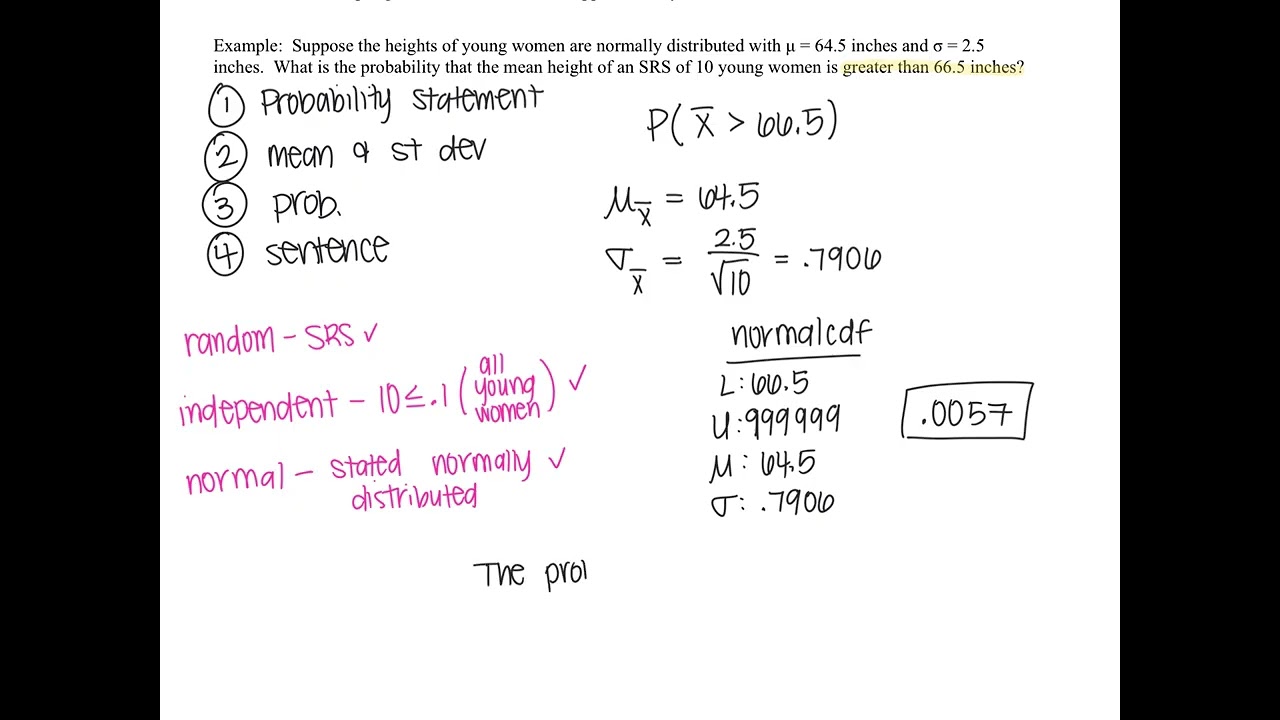 Example: Suppose the heights of young women are normally distributed with μ = 64.5 inches and σ = 2.5
inches. What is the probability that the mean height of an SRS of 10 young women is greater than 66.5 inches?
① Probability statement
② mean & st dev
③ prob.
④ sentence
P( x̄ > 66.5)
μx̄ = 64.5
σx̄ = 2.5/√10 = .7906
random – SRS ✓
independent – 10 ≤ .1 ( all young women ) ✓
normal – stated normally ✓
distributed
normalcdf
L: 66.5
U: 999999
μ: 64.5
σ: .7906
.0057
The pro